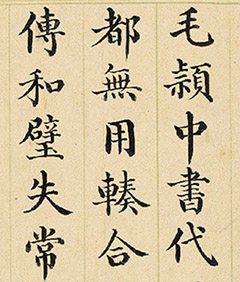 毛穎中書代
都無用輳合
傳和璧失常